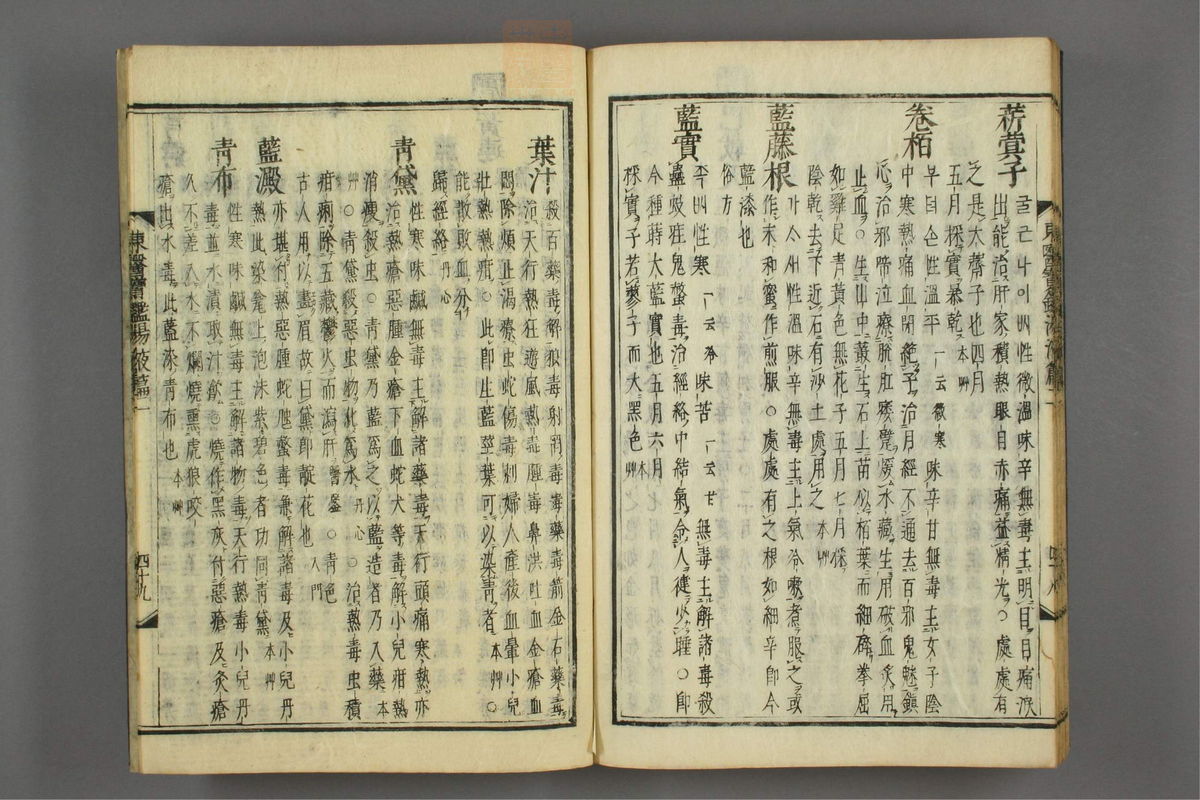 菥蓂子
굴근나이ᄡᅵ性微溫味辛無毒主明目目痛淚
出能治肝家積熱眼目赤痛益精光○處處有
之是大薺子也四月
五月採實暴乾本艸
卷栢
부텨손性溫平一云微寒味辛甘無毒主女子陰
中寒熱痛血閉絶子治月經不通去百邪鬼魅鎭
心治邪啼泣療脫肛痿躄煖水藏生用破血炙用
止血○生山中叢生石上苗似栢葉而細碎拳屈
如雞足青黃色無花子五月七月採
陰乾去下近石有沙土處用之本艸
藍藤根
가ᄉᆞ새性溫味辛無毒主上氣冷嗽煮服之或
作末和蜜作煎服○處處有之根如細辛卽今
藍漆也
俗方
藍實
性寒一云冷味苦一云甘無毒主解諸毒殺
蟲蚑疰鬼螫毒治經絡中結氣令人健少睡○卽
今種蒔大藍實也五月六月
採實子若蓼子而大黑色本艸
葉汁
殺百藥毒解狼毒射罔毒毒藥毒箭金石藥毒
治天行熱狂遊風熱毒腫毒鼻洪吐血金瘡血
悶除煩止渴療虫蛇傷毒刺婦人產後血暈小兒
壯熱熱疳○此卽生藍莖葉可以染靑者本艸○
能散敗血分
歸經絡丹心
靑黛
性寒味鹹無毒主解諸藥毒天行頭痛寒熱亦
治熱瘡惡腫金瘡下血蛇犬等毒解小兒疳熱
消瘦殺虫○靑黛乃藍爲之以藍造者乃入藥本
艸○靑黛殺惡虫物化爲水丹心○治熱毒虫積
疳痢除五藏鬱火而瀉肝醫鑑○靑色
古人用以畫眉故曰黛卽靛花也入門
藍澱
亦堪付熱惡腫蛇虺螫毒兼解諸毒及小兒丹
熱此染瓮上泡沫紫碧色者功同靑黛本艸
靑布
性寒味鹹無毒主解諸物毒天行熱毒小兒丹
毒並水漬取汁飮○燒作黑灰付惡瘡及灸瘡
久不差入水不爛燒熏虎狼咬
瘡出水毒此藍染靑布也本艸
東醫寶鑑湯液篇二
四十九